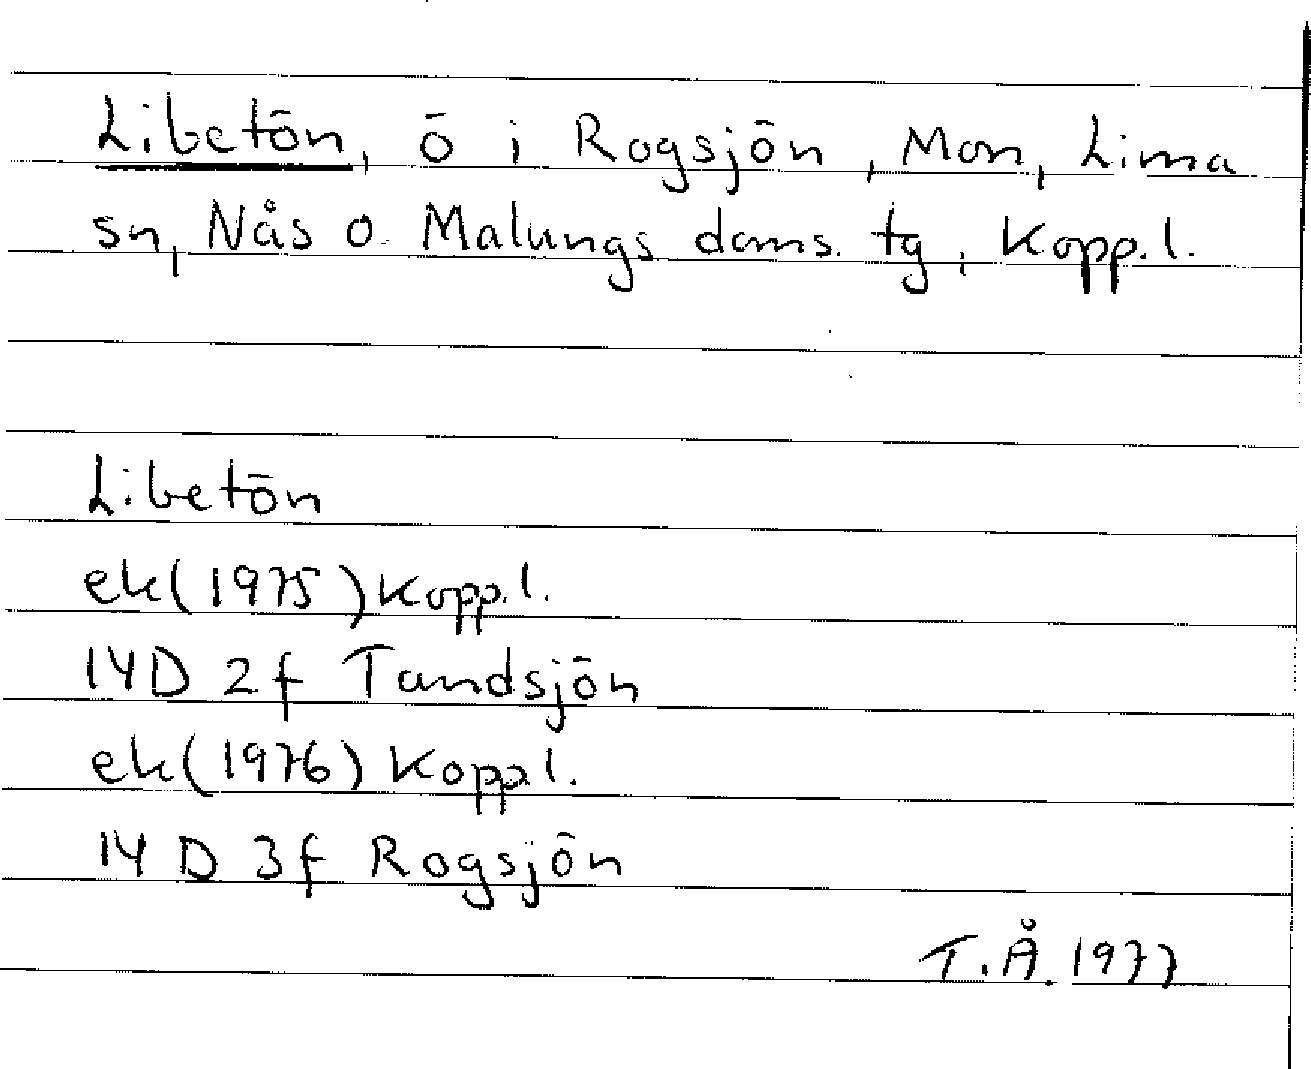 Libetön, ö i Rogsjön, Mon, Lima
sn, Nås o. Malungs doms. tg, Kopp.l.
Libetön
ek(1975)Kopp.l.
14D 2f Tandsjön
ek(1976)Kopp.l.
14 D 3f Rogsjön
T.Å. 1977